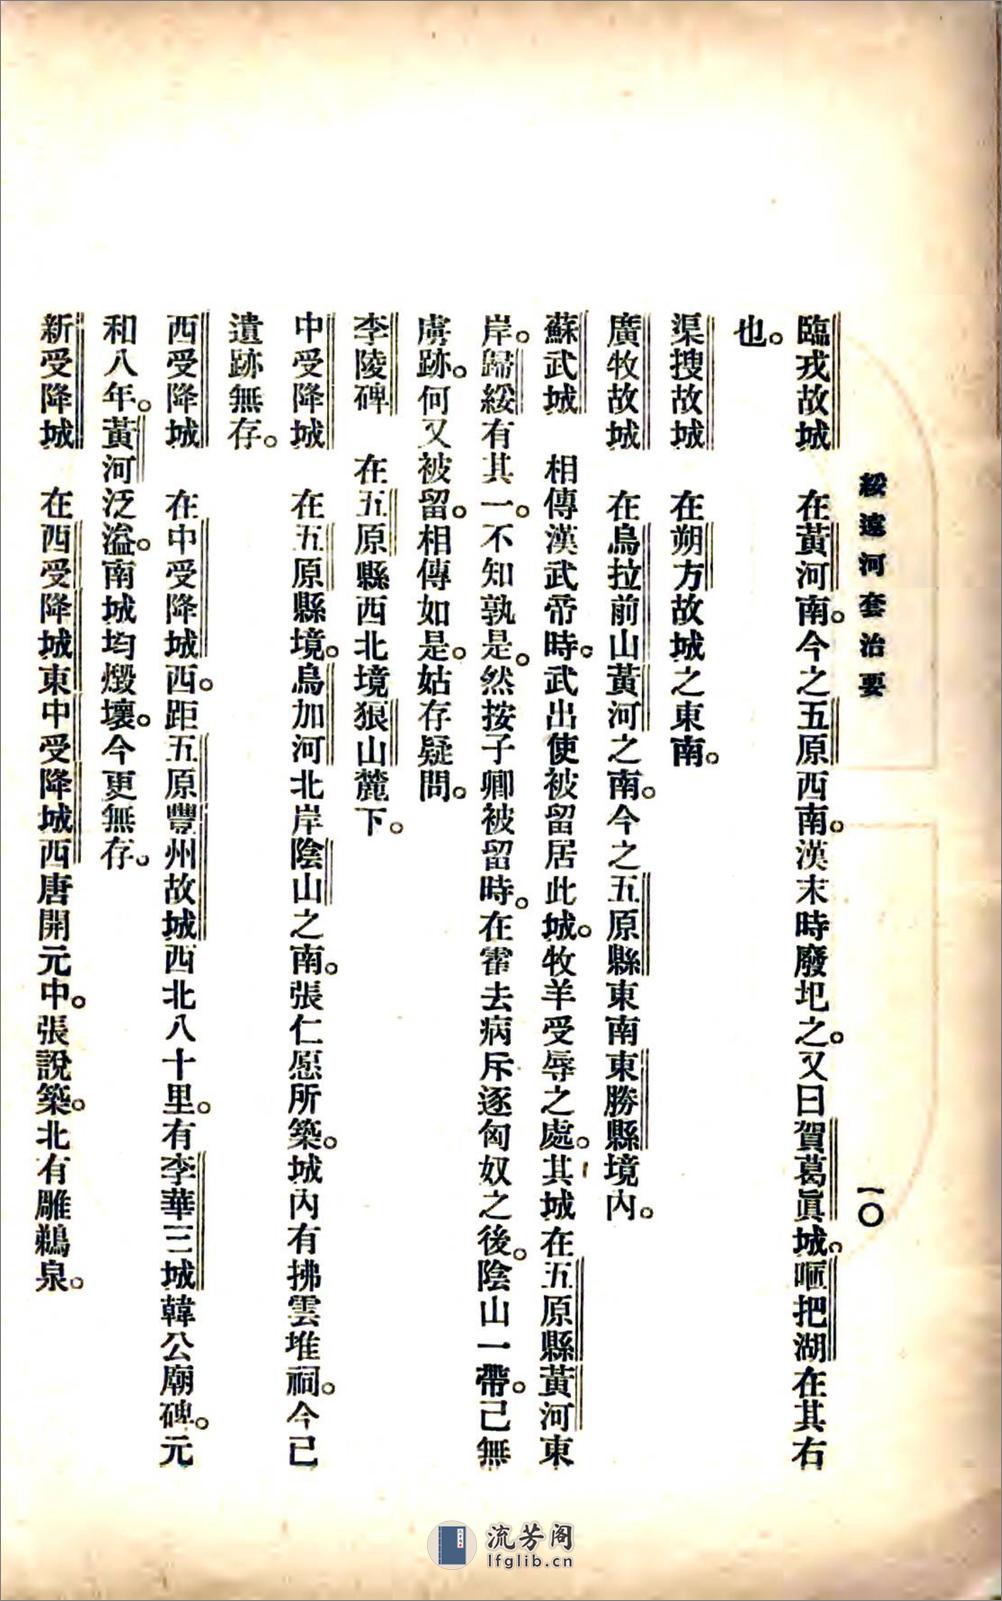 綏遠河套治要
一〇
臨戎故城　在黃河南。今之五原西南。漢末時廢圯之。又曰賀葛眞城。㗁把湖在其右
也。
渠搜故城　在朔方故城之東南。
廣牧故城　在烏拉前山黃河之南。今之五原縣東南東勝縣境內。
蘇武城　相傳漢武帝時。武出使被留居此城。牧羊受辱之處。其城在五原縣黃河東
岸。歸綏有其一。不知孰是。然按子卿被留時。在霍去病斥逐匈奴之後。陰山一帶。已無
虜跡。何又被留。相傳如是。姑存疑問。
李陵碑　在五原縣西北境狼山麓下。
中受降城　在五原縣境。烏加河北岸陰山之南。張仁愿所築。城內有拂雲堆祠。今已
遺跡無存。
西受降城　在中受降城。西距五原豐州故城西北八十里。有李華三城韓公廟碑。元
和八年。黃河泛溢。南城均燬壞。今更無存。
新受降城　在西受降城東中受降城西唐開元中。張說築。北有雕鵜泉。
流芳阁
lfglib.cn